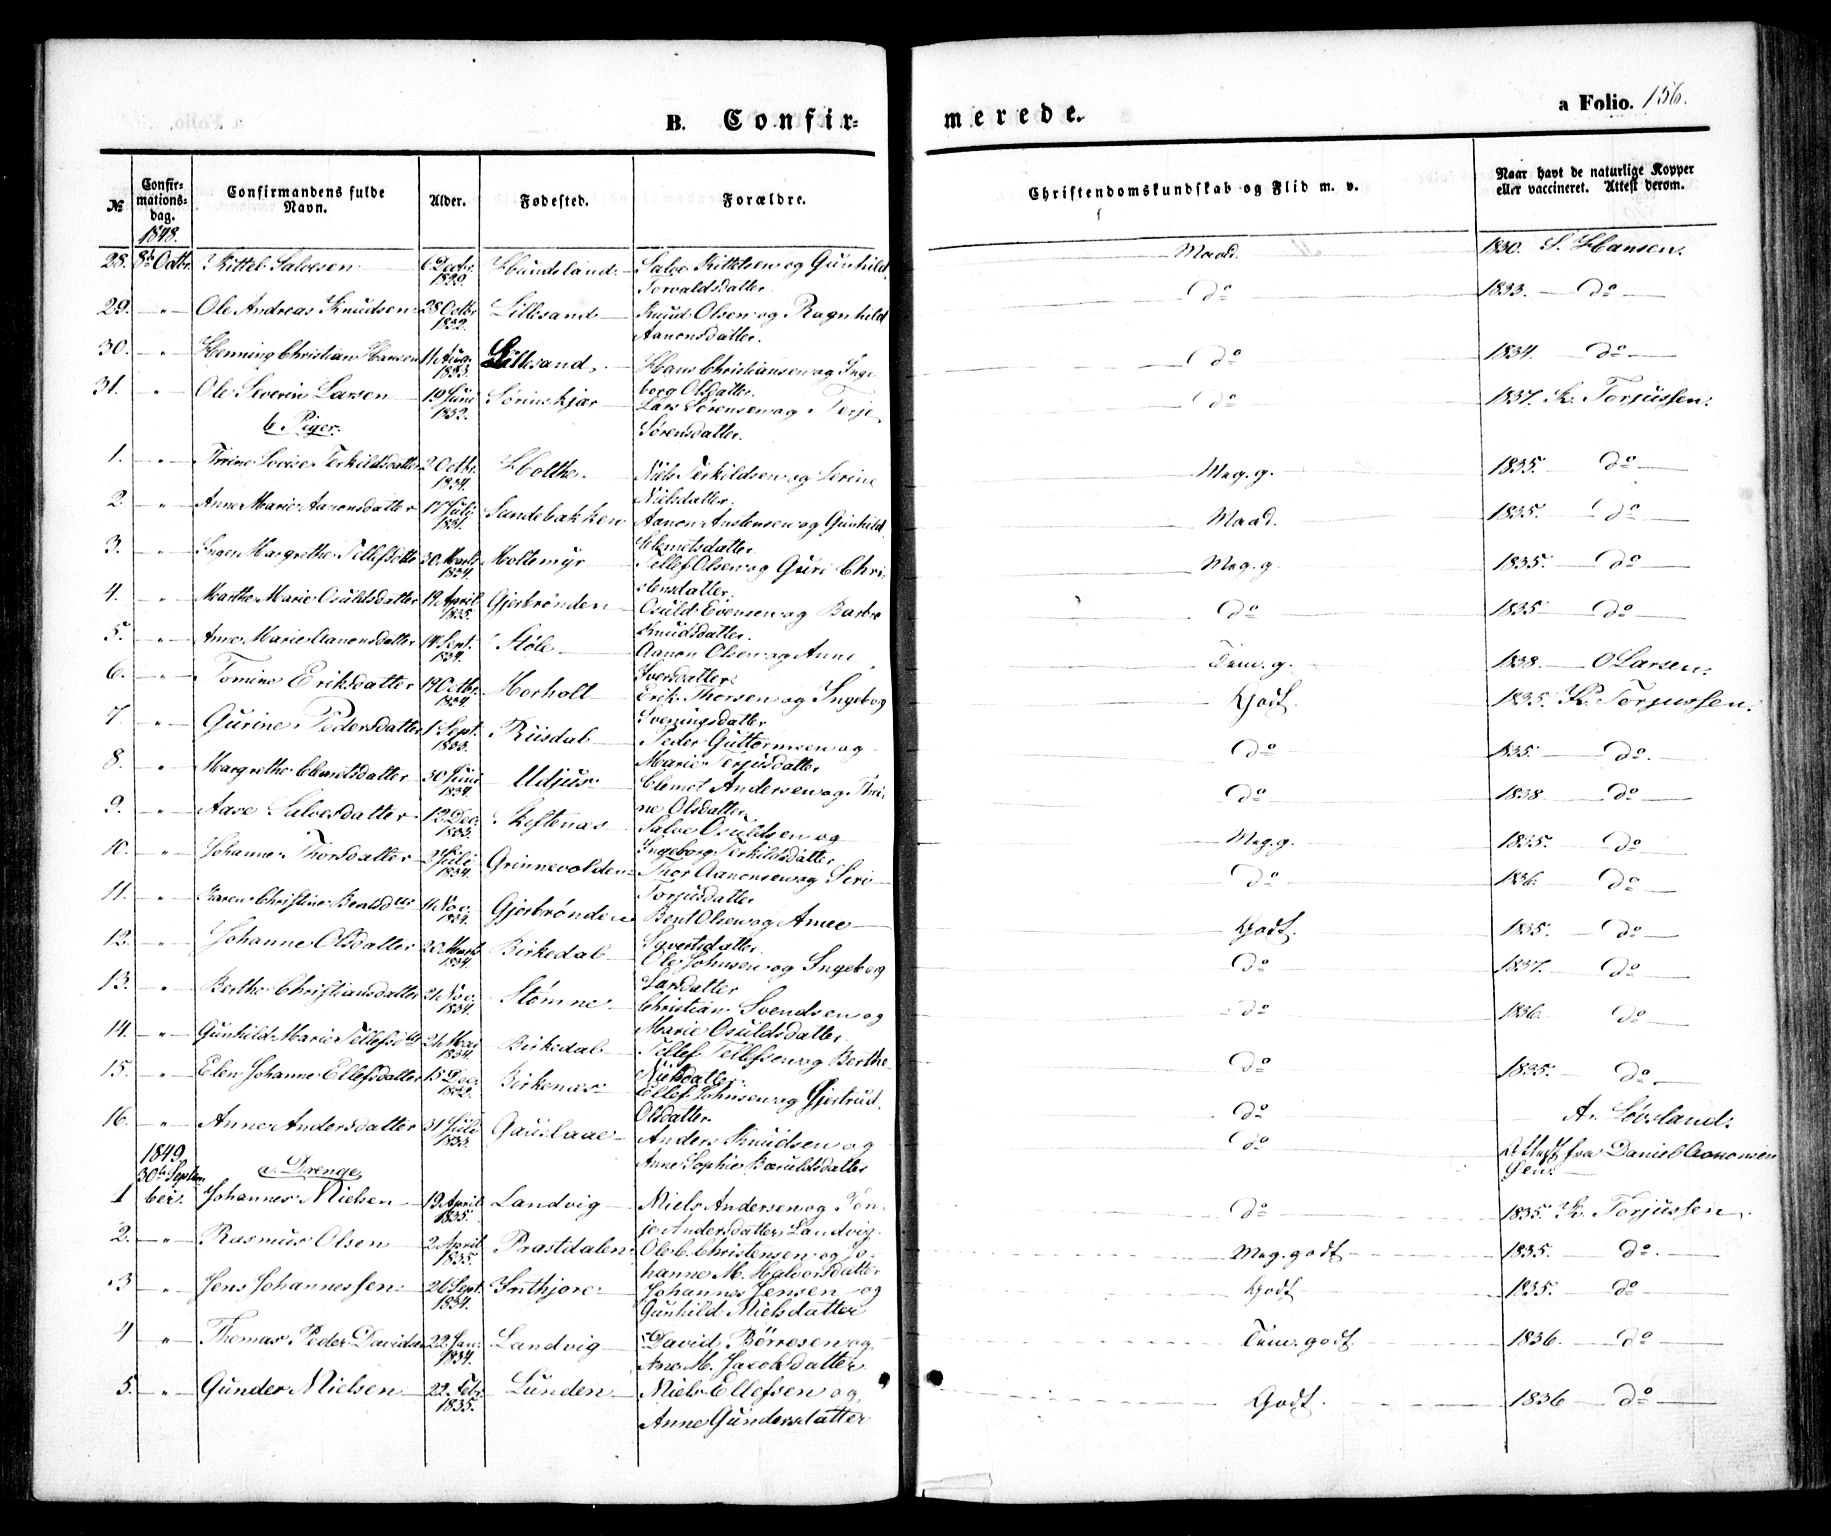 B. Confir=
merede.
a Folio. 156.
№
Confir-
mations-
dag.
1848.
Confirmandens fulde
Navn.
Alder.
Fødested.
Forældre.
Christendomskundskab og Flid m. v.
Naar havt de naturlige Kopper
eller vaccineret. Attest derom.
28. 8de Octbr. Kittel Salvesen 6 Decbr. 1829. Salve Kittelsen og Gunhild Maad. 1830. S. Hansen.
Torvaldsdatter
29. -"- Ole Andreas Knudsen 28 Octbr. 1832. Lillesand Knud Olsen og Ragnhild do 1833. do
Aanonsdatter.
30. -"- Henning Christian Hansen 11 Aug. 1833. Lillesand. Hans Christiansen og Inge- do 1834. do
borg Olsdatter.
31. " Ole Severin Larsen 19 Juni 1832. Lars Sørensen og Terje do 1837. K. Torjussen.
Sørensdatter.
b. Piger.
1. -"- Lovise Terkildsdatter 2 Octbr. 1834. Holthe. Niels Terkildsen og Serine Meg. g. 1835. do
Nielsdatter.
2. " Anne Marie Aanonsdatter 17 Juli Sandebakken Aanon Austensen og Gunhild Maad. 1835. do
Clemetsdatter
3. " Inger Margrethe Tellefsdatter 30 Marts 1834. Moltemyr Tellef Olsen og Guri Chri- Meg. g. 1835. do
stensdatter.
4. " Marthe Marie Osuldsdatter 19 April 1835. Gjerbrønden Osuld Evensen og Barbro do 1835 do
Knudsdatter.
5. " Anne Marie Aanonsdatter 14 Sept. 1834. Støle Aanon Olsen og Anne Tem. g. 1838. O Larsen.
Iversdatter.
6. -"- Tomine Eriksdatter 19 Octbr. 1834. Morholt Erik Thorsen og Ingeborg Godt. 1835. K. Torjussen.
Sveningsdatter
7 -"- Gurine Pedersdatter 1 Sept. 1833. Riisdal Peder Guttormsen og do 1835. do.
Marie Terjusdatter
8. " Margrethe Clemetsdatter 30 Juni 1834. Udjus Clemet Andersen og Thri- do 1838 do
ne Olsdatter
9. " Aase Salvesdatter 12 Dec. 1833. Skiftenæs Salve Osuldsen og Meg. g. 1835. do
Ingeborg Terkildsdatter
10. -"- Johanne Thorsdatter 2 Juli 1834. Grinnevolden Thor Aanonsen og Siri do 1836. do
Torjusdatter
11. " Karen Christine Bentsdtr 11 Nov. 1834. Gjerbrønden Bent Olsen og Anne Godt. 1835. do
Syvertsdatter
12. -"- Johanne Olsdatter 20 Marts 1834. Birkedal Ole Johnsen og Ingeborg do 1837. do
Larsdatter
13. " Berthe Christiansdatter 21 Nov. 1834. Stømne Christian Svendsen og do 1836. do
Marie Osuldsdatter.
14. -"- Gunhild Marie Tellefsdtr 21 Mai 1834. Birkedal Tellef Tellefsen og Berthe do 1835. do.
Nielsdatter.
15. " Elen Johanne Ellefsdatter 15 Dec. Birkenæs Ellef Johnsen og Gjertrud do A. Løvsland.
Olsdatter.
16. -"- Anne Andersdatter 31 Juli 1833. Gauslaae Anders Knudsen og do Attest fra Daniel Aanonsen
Anne Sophie Bæruldsdatter
1849. a. Drenge.
30te Septem
1 ber. Johannes Nielsen 19 April 1835. Landvig Niels Andersen og Ton- do 1835. K. Torjussen.
je Andersdatter Landvig.
2. -"- Rasmus Olsen 2 April 1835. Præstdalen Ole C. Christensen og Jo- Meg. godt 1835. do.
hanne M. Halvorsdatter
3 " Jens Johannessen 26 Sept. 1834. Inthjore Johannes Jensen og Godt 1835. do
Gunhild Nielsdatter
4 " Thomas Peder Davidsen 22 Jan. 1834. Landvig David Børresen og Tem. godt. 1836. do
Ane M. Jacobsdatter.
5. -"- Gunder Nielsen 22 Feb. 1835. Lunden Niels Ellefsen og Godt. 1836 do
Anne Gundersdatter